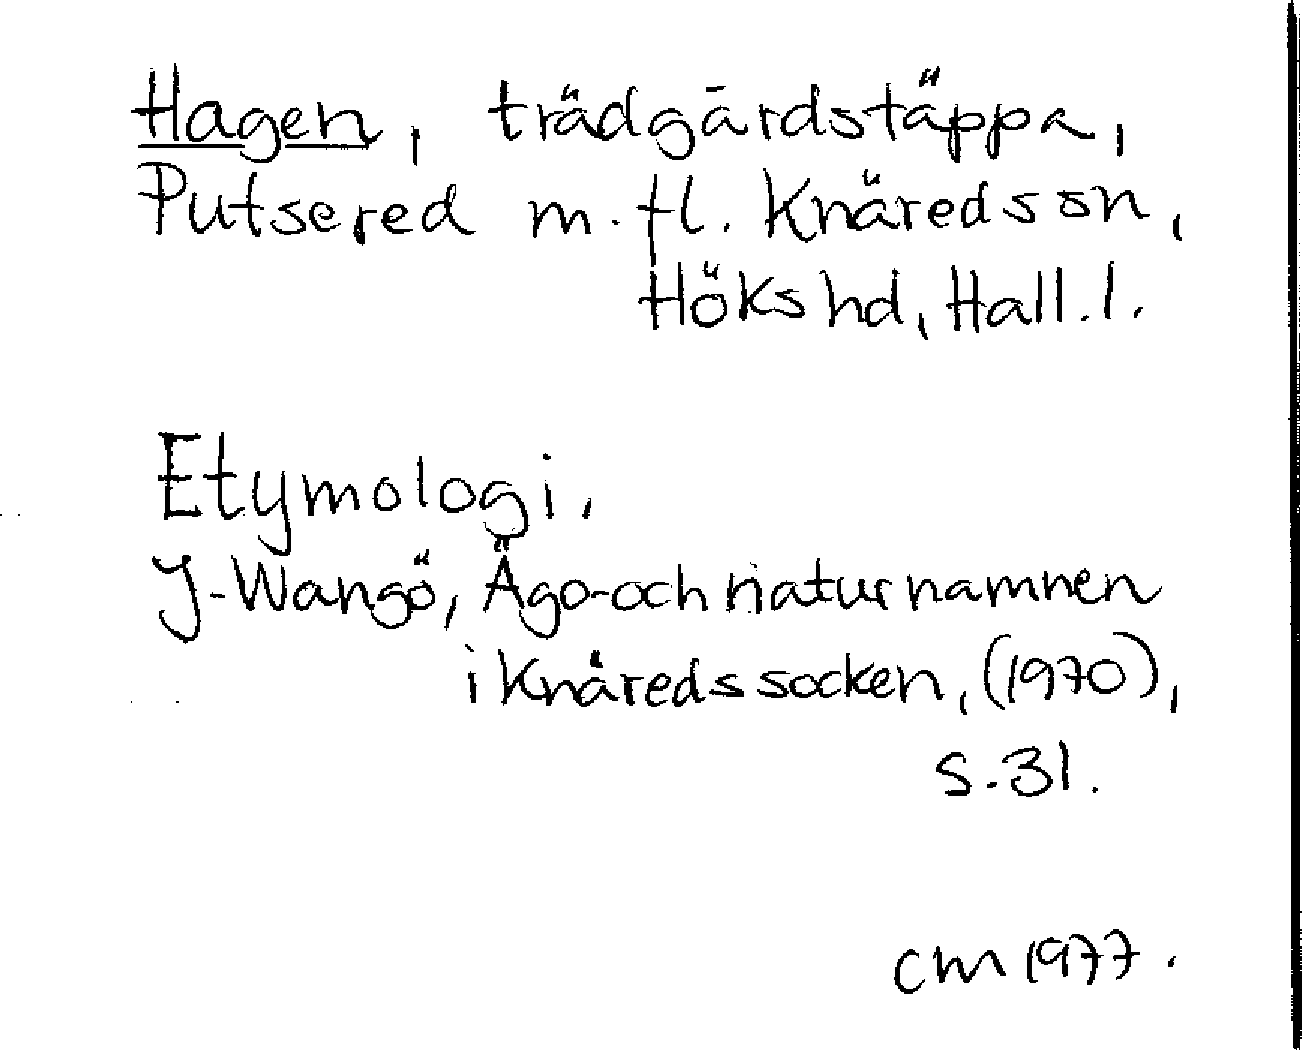 Hagen, trädgårdstäppa,
Putsered m.fl. Knäreds sn,
Höks hd, Hall.l.
Etymologi,
J-Wangö, Ägo-och naturnamnen
i Knäreds socken, (1970),
s.31.
CM 1977.